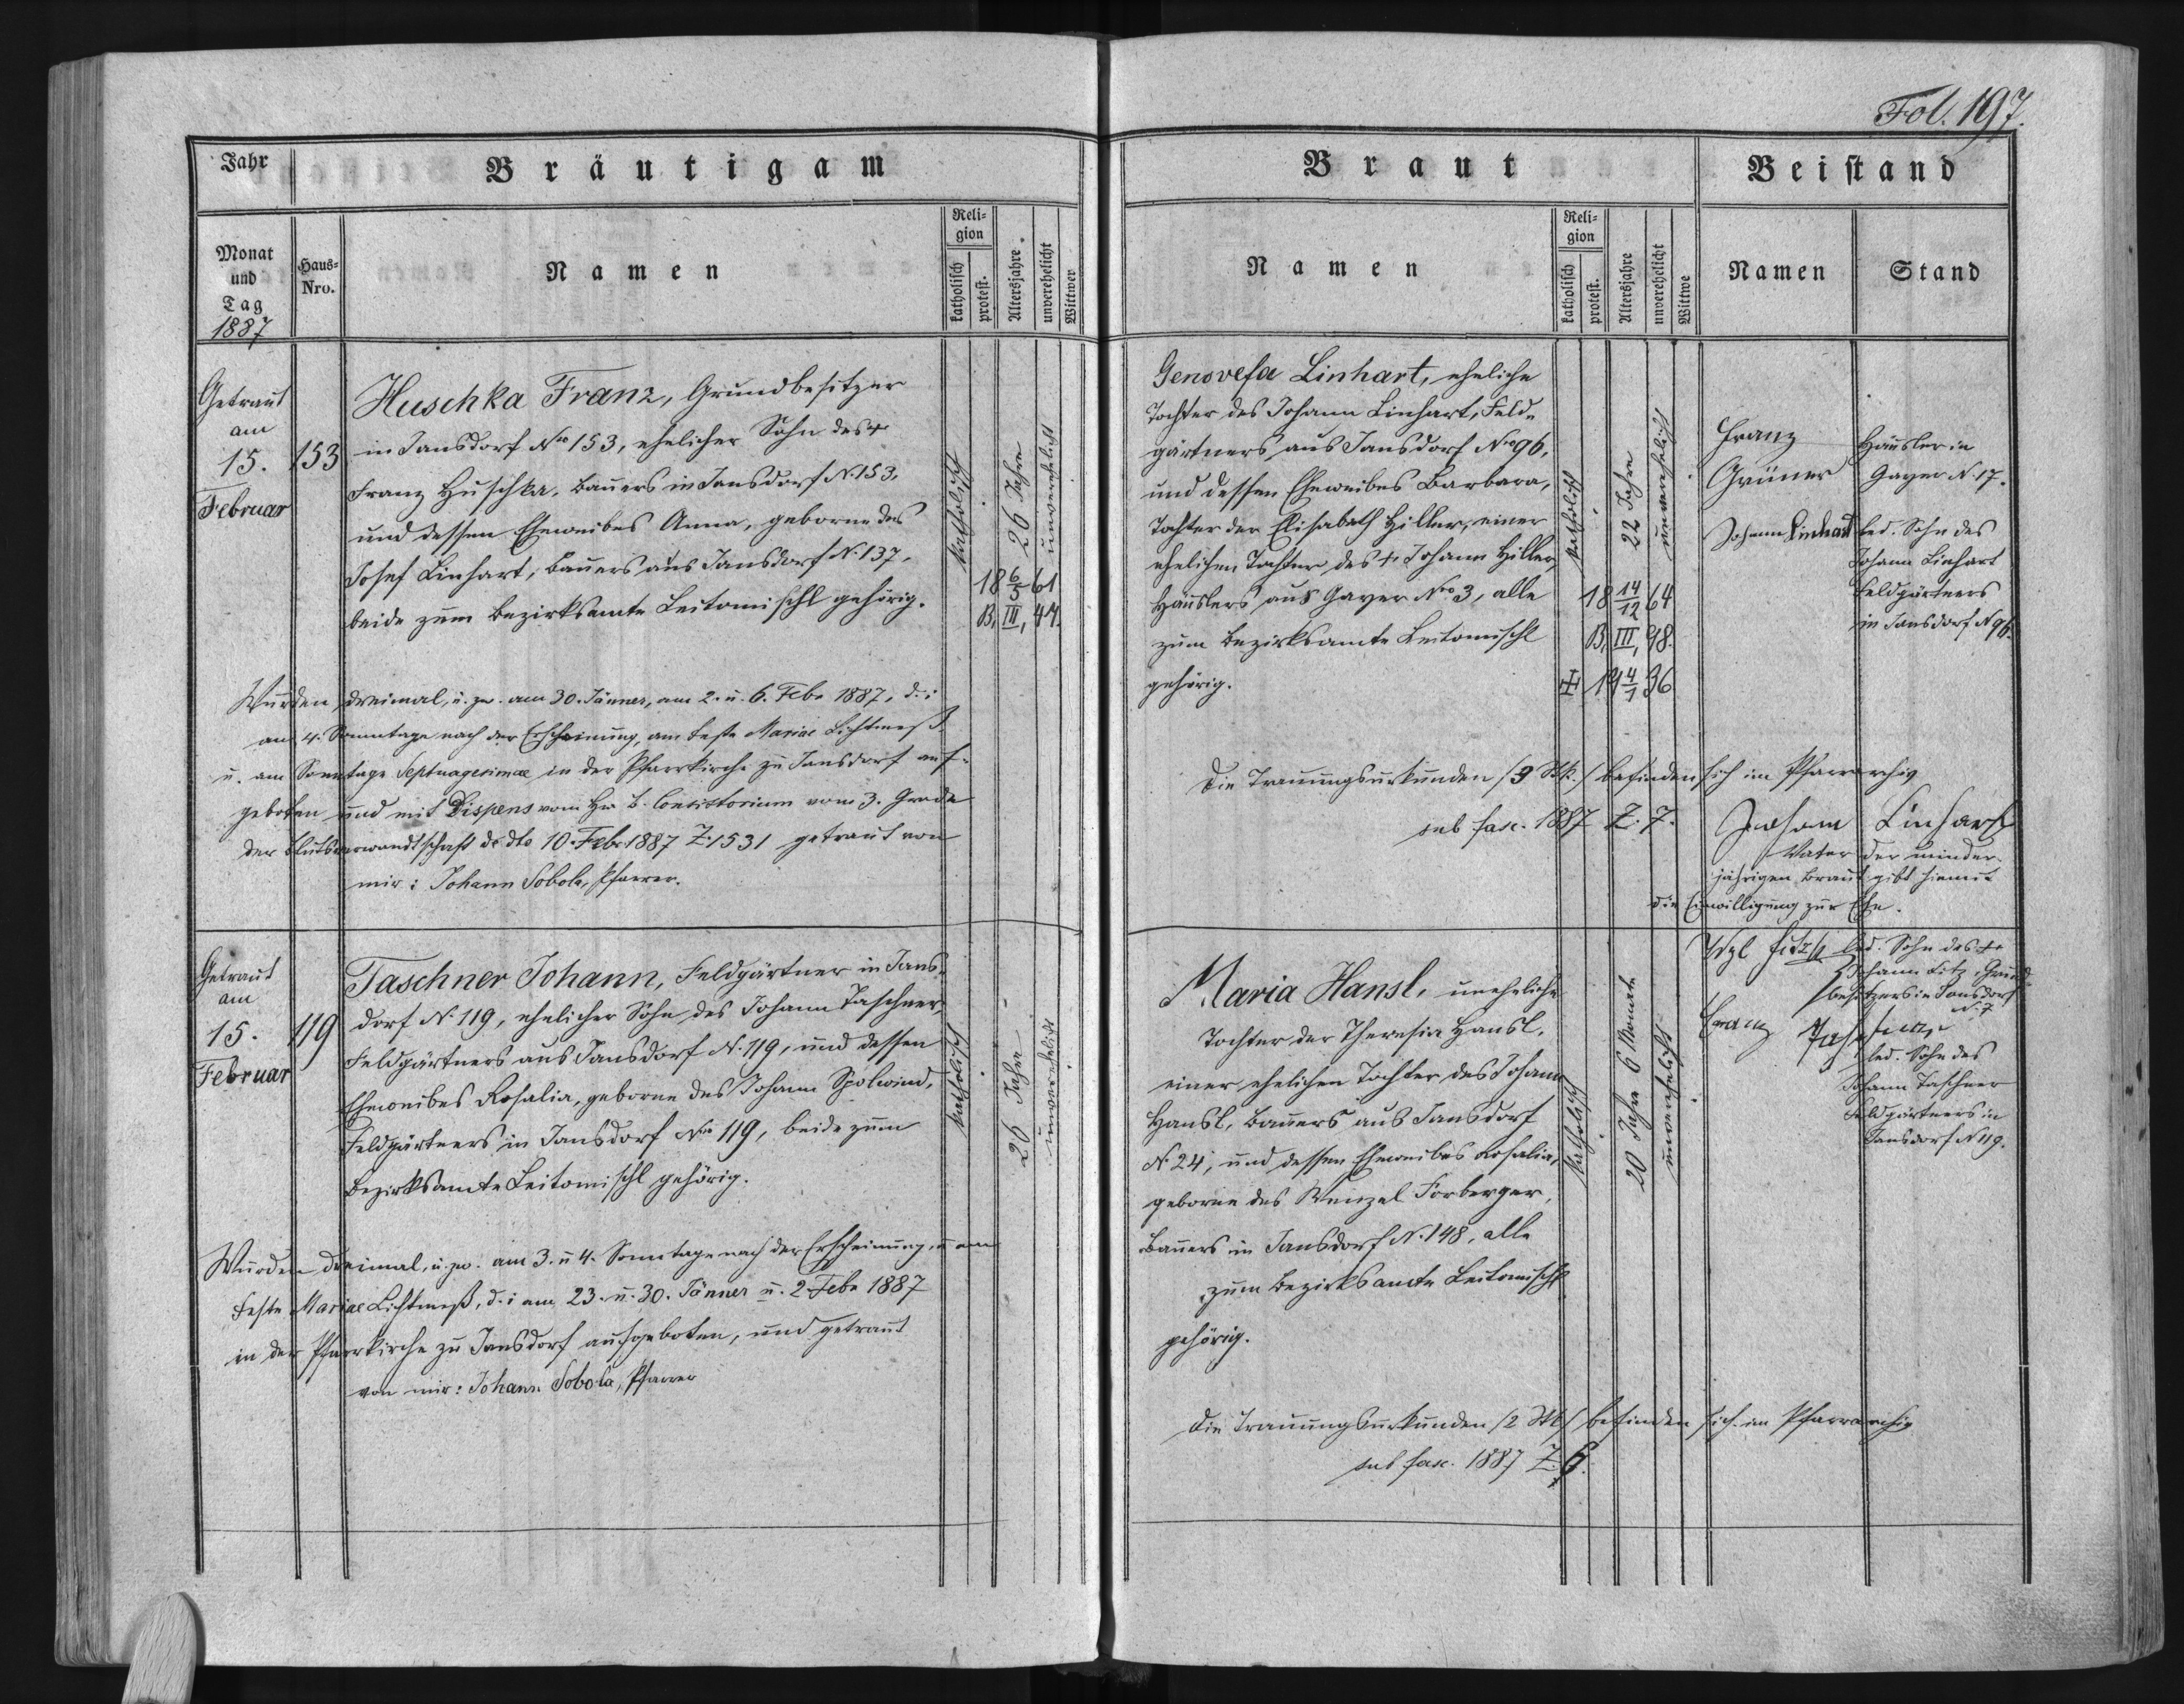 Fol. 197.
Jahr
Bräutigam
Braut
Beistand
Monat
und
Tag
1887
Haus-
Nro.
Namen
Reli-
gion
katholisch
protest.
Altersjahre
unverehelicht
Wittwer
Namen
Reli-
gion
katholisch
protest.
Altersjahre
unverehelicht
Wittwe
Namen
Stand
Getraut
am
15.
Februar
153
Huschka Franz, Grundbesitzer
in Jansdorf Nro 153, ehelicher Sohn des +
Franz Huschka, Bauers in Jansdorf N. 153,
und dessen Eheweibes Anna, geborne des
Josef Linhart, Bauers aus Jansdorf N. 137,
beide zum Bezirksamte Leitomischl gehörig.
katholisch
26 Jahre
unverehelicht
18 6/5 61
B, III, 44.
Wurden dreimal, u. zw. am 30. Jänner, am 2. u. 6. Feb. 1887, d. i.
am 4. Sonntage nach der Erscheinung, am Feste Mariae Lichtmeß,
u. am Sonntage Septuagesimae in der Pfarrkirche zu Jansdorf auf-
geboten und mit Dispens vom Hw. b. Consistorium vom 3. Grade
der Blutsverwandtschaft de dto 10. Feb. 1887 Z. 1531 getraut von
mir: Johann Sobola, Pfarrer.
Genovefa Linhart, eheliche
Tochter des Johann Linhart, Feld-
gärtners aus Jansdorf Nro 96,
und dessen Eheweibes Barbara,
Tochter der Elisabeth Hiller, einer
ehelichen Tochter des + Johann Hiller,
Häuslers aus Gayer Nro 3, alle
zum Bezirksamte Leitomischl
gehörig.
katholisch
22 Jahre
unverehelicht
18 14/12 64
B, III, 98.
+ 19 4/1 36
Franz
Grüner
Häusler in
Gayer N. 17.
Johann Linhart
led. Sohn des
Johann Linhart
Feldgärtners
in Jansdorf N 96.
Die Trauungsurkunden /9 Stk./ befinden sich im Pfarrarchiv
sub fasc. 1887 Z. 7.
Johann Linhart
Vater der minder-
jährigen Braut gibt hiemit
die Einwilligung zur Ehe.
Getraut
am
15.
Februar
119
Taschner Johann, Feldgärtner in Jans-
dorf N. 119, ehelicher Sohn des Johann Taschner,
Feldgärtners aus Jansdorf N. 119, und dessen
Eheweibes Rosalia, geborne des Johann Spolwind,
Feldgärtners in Jansdorf Nro 119, beide zum
Bezirksamte Leitomischl gehörig.
katholisch
26 Jahre
unverehelicht
Wurden dreimal, u. zw. am 3. u 4. Sonntage nach der Erscheinung, u am
Feste Mariae Lichtmeß, d. i am 23. u. 30. Jänner u. 2. Feb. 1887
in der Pfarrkirche zu Jansdorf aufgeboten, und getraut
von mir: Johann Sobola, Pfarrer
Maria Hansl, uneheliche
Tochter der Theresia Hansl,
einer ehelichen Tochter des Johann
Hansl, Bauers aus Jansdorf
N. 24, und dessen Eheweibes Rosalia,
geborne des Wenzel Forberger,
Bauers in Jansdorf N. 148, alle
zum Bezirksamte Leitomischl
gehörig.
katholisch
20 Jahre 6 Monate
unverehelicht
Fitz
led. Sohn des +
Johann Fitz, Grund-
besitzers in Jansdorf
N. 7
Franz
led. Sohn des
Johann Taschner
Feldgärtners in
Jansdorf N 119.
Die Trauungsurkunden /2 Stk/ befinden sich im Pfarrarchiv
sub fasc. 1887 Z. 6.